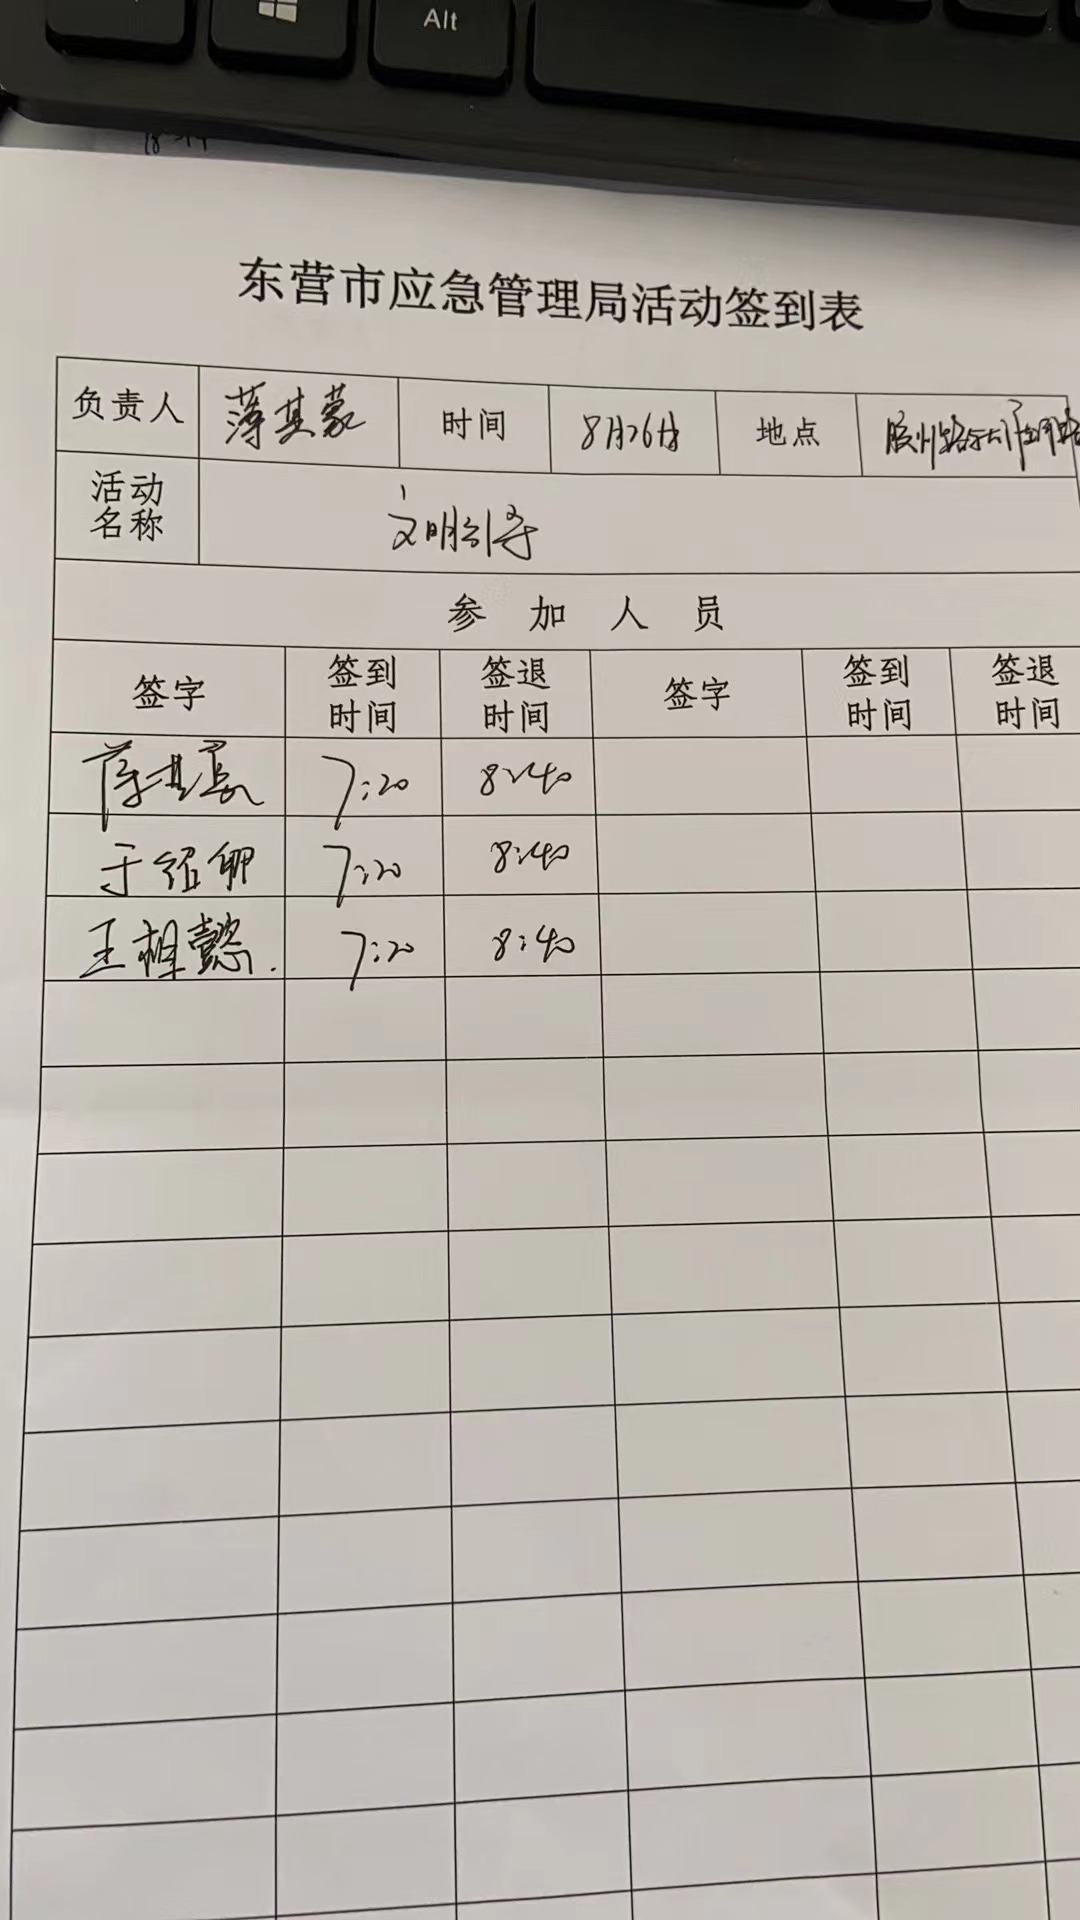 Alt
东营市应急管理局活动签到表
负责人 薄其蒙 时间 8月26日 地点 胶州路
活动名称 文明引导
参加人员
签字 签到时间 签退时间 签字 签到时间 签退时间
薄其蒙 7:20 8:40
于绍卿 7:20 8:40
王相懿. 7:20 8:40